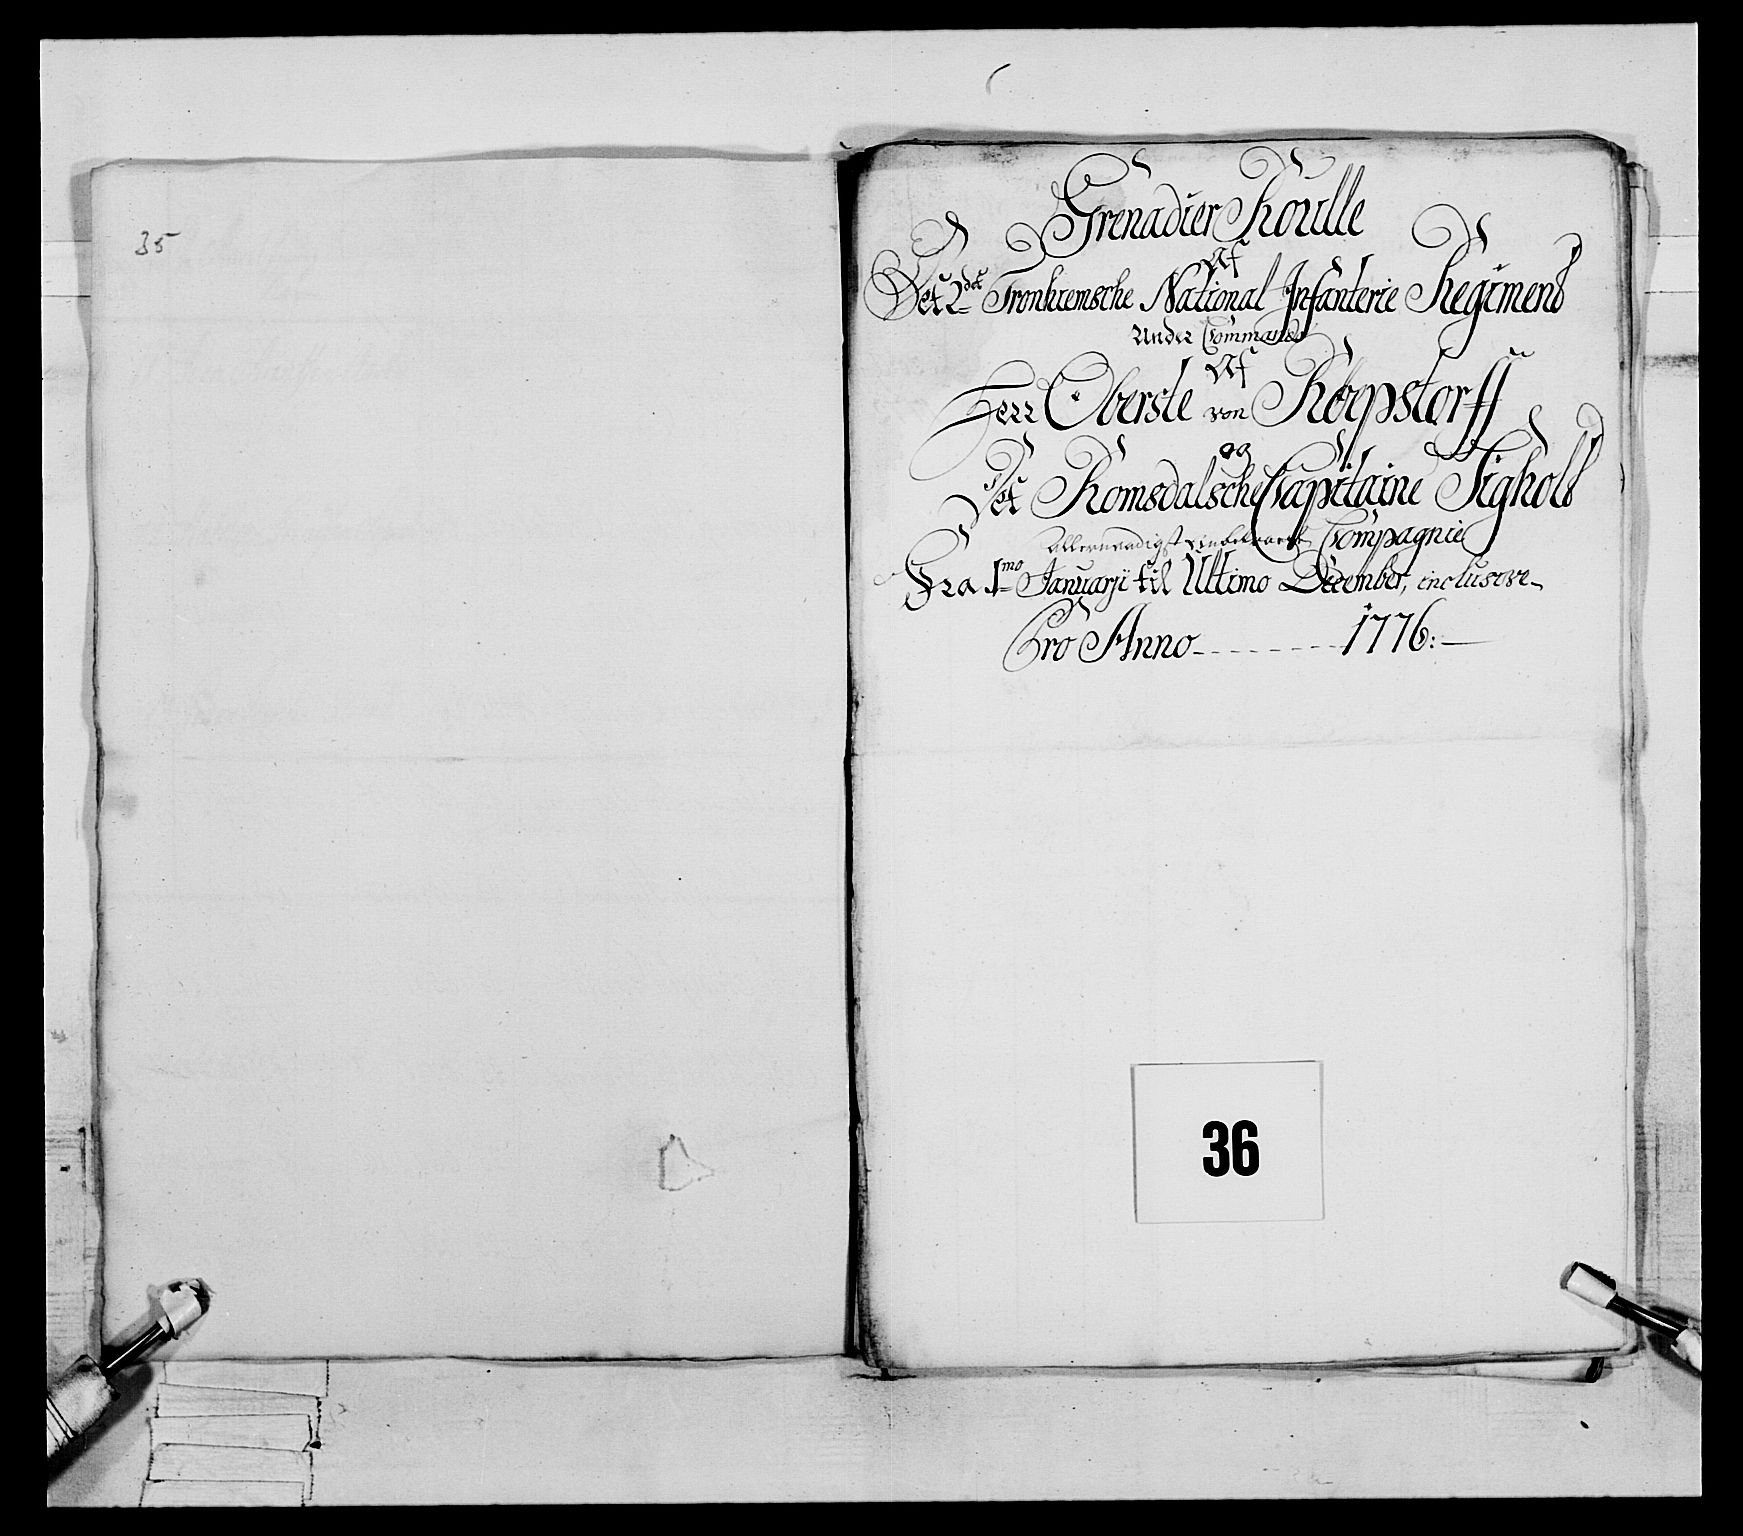 35
Grenadier Roulle
Af
Det 2det Tronhiemsche National Infanterie Regiment
Under Commando
Af
Herr Oberste von Röepstorff
og
Det Romsdalsche Capitaine Tigholt
allernaadigst Compagnie
Fra 1mo Januarji til Ultimo December, inclusive
Pro Anno - - - - - - - - 1776:
36